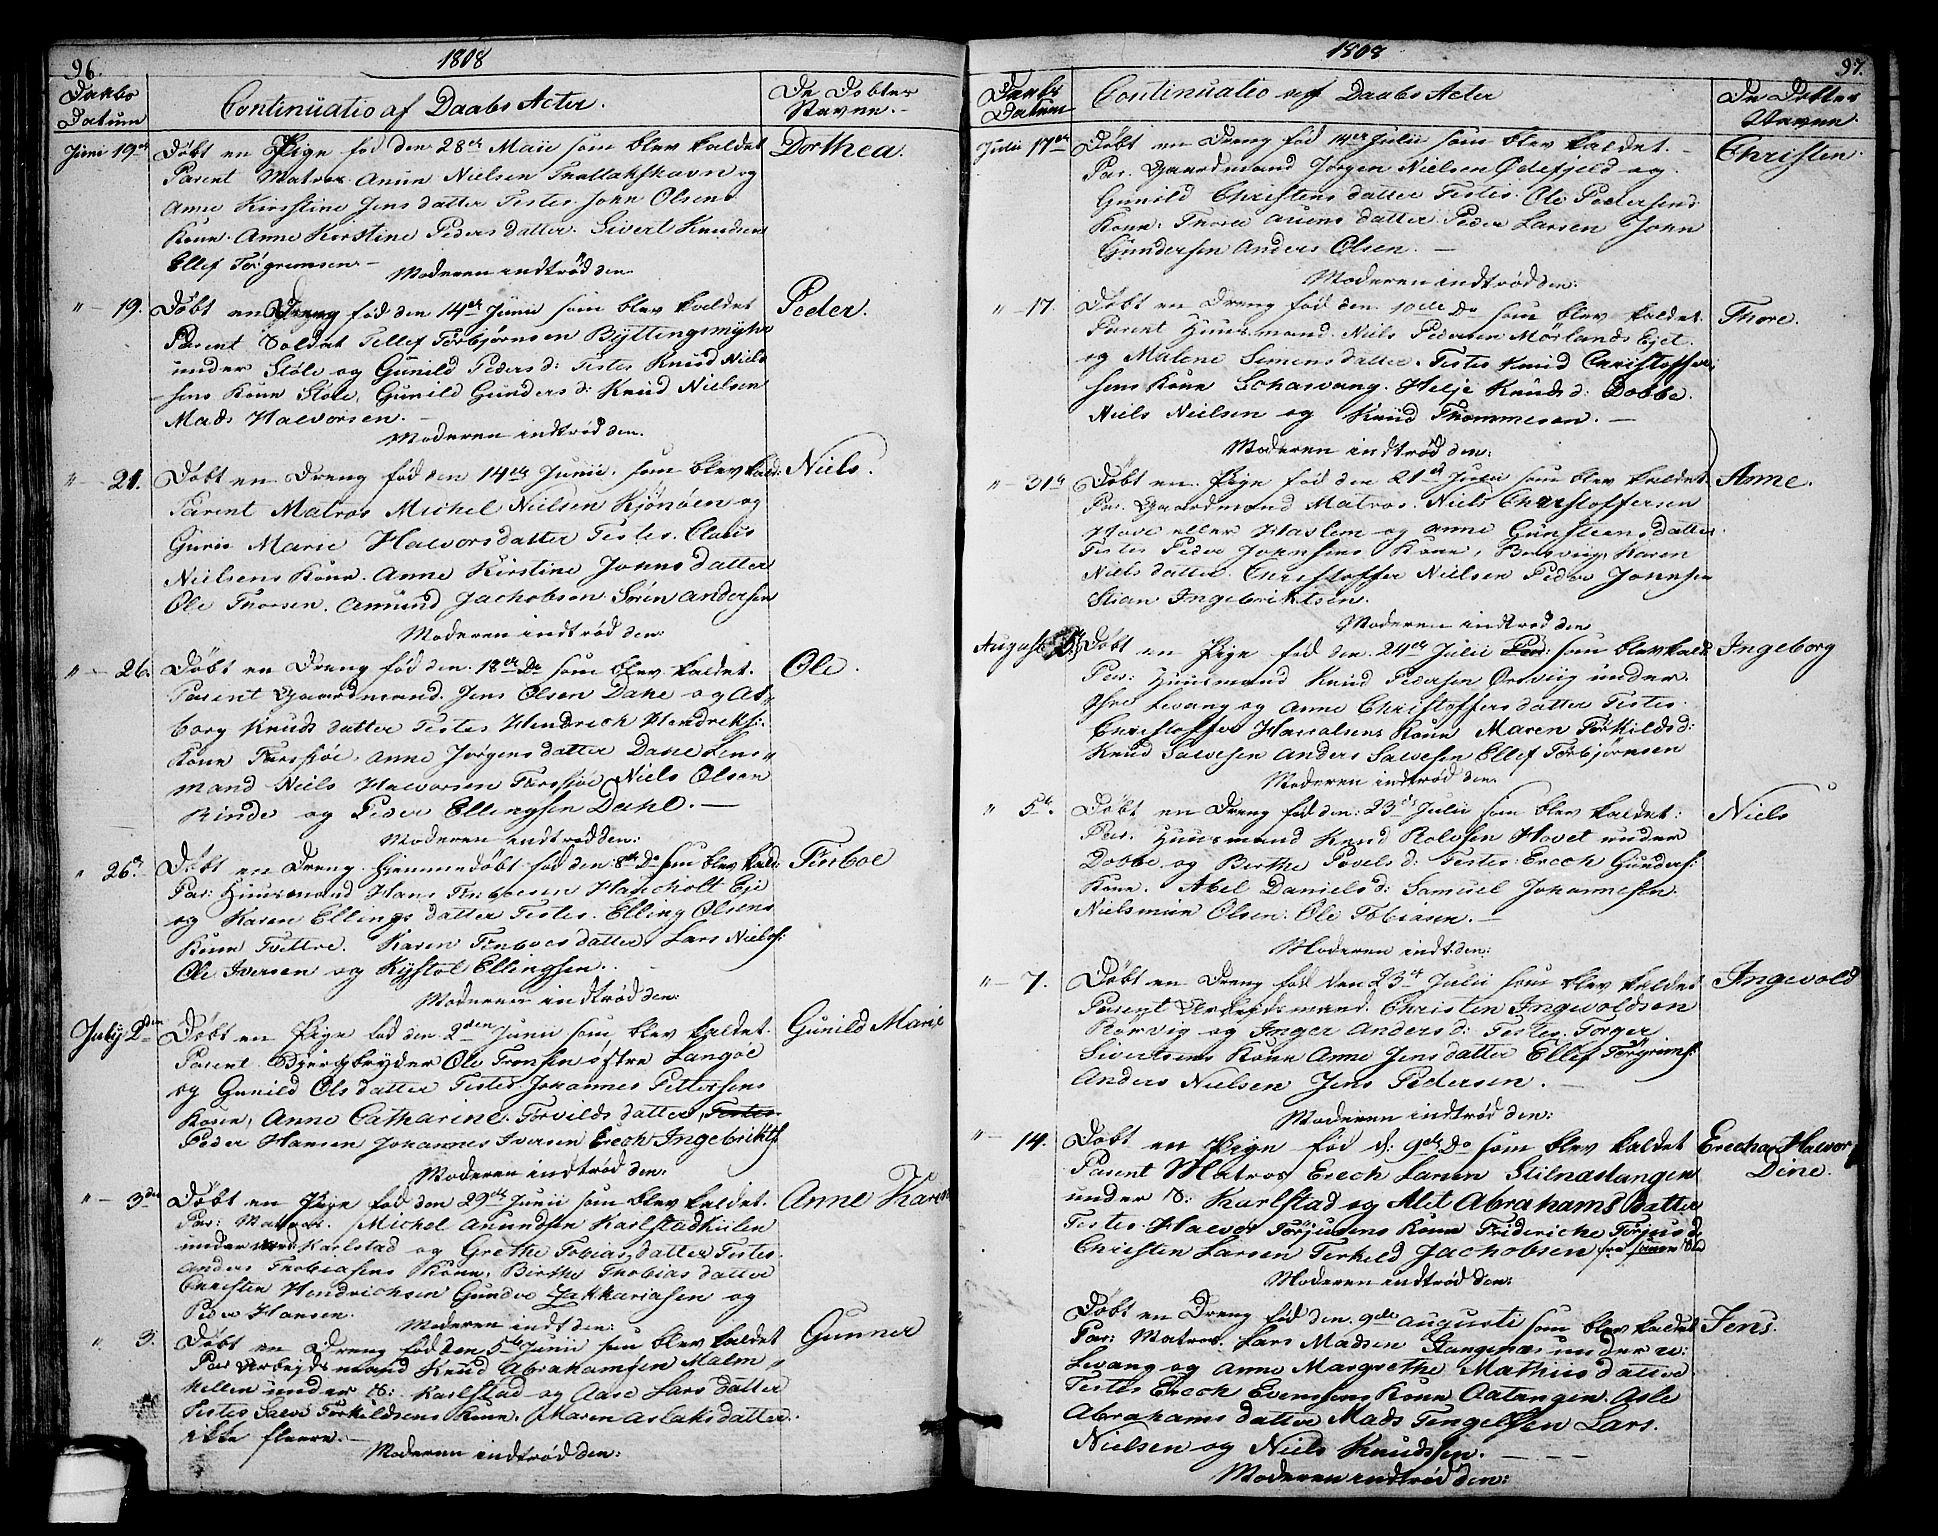 96.
1808
Daabs Datum
Continuatio af Daabs Acter.
De Döbtes Navne.
Juni 19de Döbt en Pige fød den 28de Maii som blev kaldet Dorthea.
Parent Matros Anun Nielsen og
Anne Kirstine Jensdatter Testes John Olsens
Kone. Anne Kirstine Pedersdatter. Sivert Knudsen
Ellef Torgrimsen –
Moderen indtrød den
" – 19. Döbt en Dreng fød den 14de Junii som blev kaldet Peder.
Parent Soldat Tellef Torbjørnsen Byttingsmyhr
under Støle og Gunild Peders d: Testes Knud Niel
sens Kone Støle, Gunild Gunders d: Knud Nielsen
Mads Halvorsen. –
Moderen indtrød den.
" – 21. Döbt en Dreng fød den 14de Junii. som blev kald: Niels.
Parent Matros Michel Nielsen Kjönöen og
Guri Marie Halvorsdatter Testes. Claus
Nielsens Kone. Anne Kirstine Johnsdatter
Ole Thorsen. Amund Jachobsen Sören Andersen
Moderen indtrød den:
" – 26. Döbt en Dreng fød den. 18de Do som blev kaldet. Ole.
Parent Gaardmand. Jens Olsen Dahe og As-
borg Knudsdatter Testes Hendrich Hendriks:
Kone Farssjøe, Anne Jørgensdatter Dahe Lens
mand Niels Halvorsen Farssjøe Niels Olsen
Rinde og Peder Ellingsen Dahl. –
Moderen indtrød den:
" 26de Döbt en Dreng Hjemmedøbt fød den 8de Do som blev kald: Finboe
Par: Huusmand Hans Finboesen Havcholt Eje
og Karen Ellingsdatter Testes. Elling Olsens
Kone Tvettre. Karen Finboesdatter, Lars Niels:
Ole Iversen og Kystol Ellingsen.
Moderen indtrød den:
July 2den Döbt en Pige fød den 2den Junii som blev kaldet. Gunild Marie
Parent Bjergbryder Ole Tronsen østre Langøe
og Gunild Olsdatter Testes. Johannes Pettersens
Kone, Anne Catharine Torvildsdatter, Testes
Peder Hansen Johannes Iversen Erech Ingebrikts
Moderen indtrød den:
" – 3de Döbt en Pige fød den 29de Junii som blev kaldet. Anne Karen
Par: Matros. Michel Anundsen Karlstadkilen
under Karlstad og Grethe Tobiasdatter Testes.
Anders Thobiasens Kone, Birthe Thobiasdatter
Christen Hendrichsen Gunder Zakkariasen og
Peder Hansen.
Moderen indt den:
" 3. Döbt en Dreng fød den 5te Junii som blev kaldet Gunner
Par Arbejdsmand Knud Abrahamsen Malm
hellen under S: Karlstad og Aase Larsdatter
Testes Salve Torkildsens Kone. Maren Aslaksdatter.
ikke fleere. –
Moderen indtrød den:
1808
97.
Daabs Datum
Continuatio af Daabs Acter
De Döbtes Navne.
Julii 17de Döbt en Dreng fød 14de Julii som blev kaldet. – Christen.
Par. Gaardmand Jørgen Nielsen Ødefjeld og
Gunild Christensdatter Testes. Ole Pedersens
Kone. Thore Auensdatter. Peder Larsen John
Gundersen Anders Olsen. –
Moderen indtrød den:
" – 17. Döbt en Dreng fød den 10de Do som blev kaldet. Thore.
Parent Huusmand. Niels Pedersen Mörlands Ejet.
og Malene Simensdatter. Testes Knud Christoffer
sens Kone Lohasvang. Helje Knuds d: Dobbe.
Niels Nielsen og Knud Thommesen. –
Moderen indtrød den:
" – 31te Döbt en Pige fød den 21de Julii som blev kaldet Anne.
Par. Gaardmand Matros. Niels Christoffersen
Hove eller Haslem og Anne Gunsteensdatter.
Testes Peder Johnsens Kone, Borviig, Karen
Nielsdatter. Christoffer Nielsen Peder Johnsen
Stian Ingebriktsen.
Moderen indtrød den
August Döbt en Pige fød den 24de Julii Par: som blev kald. Ingeborg
Par: Huusmand Knud Pedersen Ørviig under
Øhre Levang og Anne Christoffersdatter Testes.
Christoffer Haraldsens Kone Maren Torkilds d:
Knud Salvesen Anders Salvesen Ellef Torbjørnsen
Moderen indtrød den:
" 5te. Döbt en Dreng fød den: 23de Julii som blev kaldet: Niels
Par. Huusmand Knud Rolvsen Hovet under
Dobbe og Birthe Povels d: Testes Erech Gunders:
Kone. Abel Daniels d: Samuel Johannesen.
Nielsmün Olsen. Ole Tobiasen. –
Moderen indt: den:
" – 7. Döbt en Dreng fød den 23de Julii som blev kaldet Ingevold
Parent Arbejdsmand. Christen Ingevoldsen
Rörvig og Inger Anders d: Testes. Torger
Sivertsens Kone Anne Jensdatter Ellef Torgrims:
Anders Nielsen Jens Pedersen. –
Moderen indtrød den:
" – 14. Döbt en Pige fød d: 9de Do som blev kaldet Erecha Halvor
Dine.
Parent Matros Erech Larsen Stilnestangen
under S: Karlstad og Alet Abrahams Datter
Testes. Halvor Torjusens Kone Friderche Torjus d:
Christen Larsen Terkeld Jachobsen
Moderen indtrød den:
Döbt en Dreng fød den. 9de Augusti som blev kaldet Jens.
Par: Matros. Lars Madsen Stangenæs under
Levang og Anne Margrethe Mathiisdatter
Testes Erech Evensens Kone Aatangen. Asle
Abrahamsdatter Mads Tengelsen Lars.
Nielsen og Niels Knudsen. –
Moderen indtrød den: